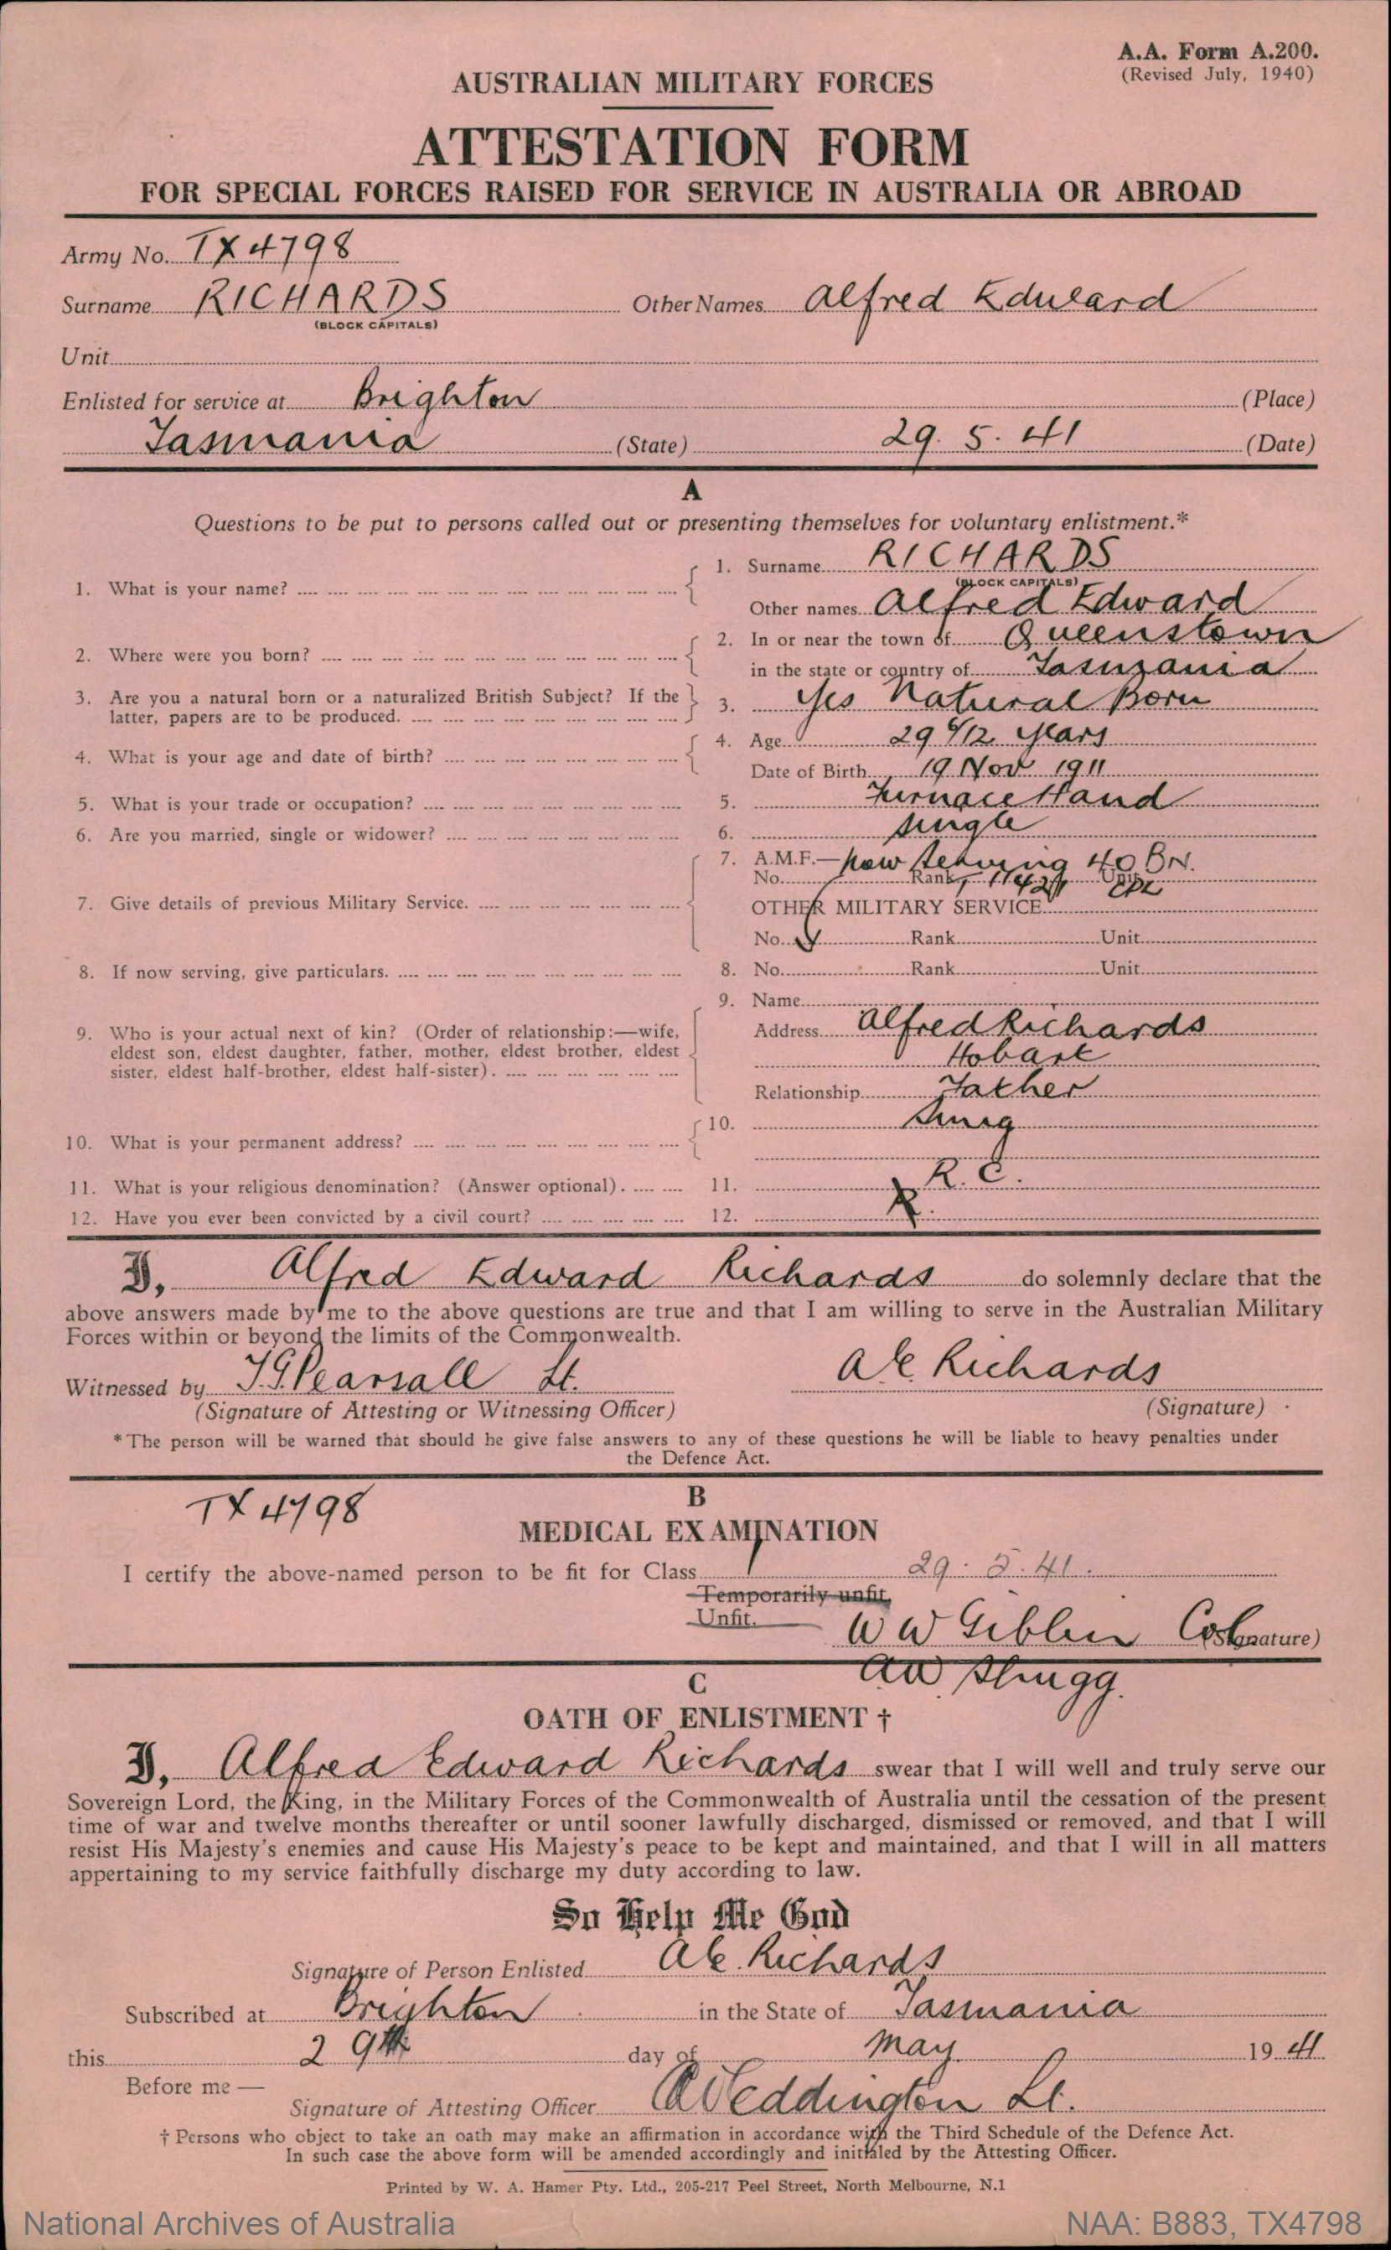 A.A. Form A.200.
(Revised July, 1940)
AUSTRALIAN MILITARY FORCES
ATTESTATION FORM
FOR SPECIAL FORCES RAISED FOR SERVICE IN AUSTRALIA OR ABROAD
Army No. TX4798
Surname RICHARDS Other Names Alfred Edward
(BLOCK CAPITALS)
Unit
Enlisted for service at Brighton (Place)
Tasmania (State) 29. 5. 41 (Date)
A
Questions to be put to persons called out or presenting themselves for voluntary enlistment.*
1. What is your name? 1. Surname RICHARDS
(BLOCK CAPITALS)
Other names Alfred Edward
2. Where were you born? 2. In or near the town of Queenstown
in the state or country of Tasmania
3. Are you a natural born or a naturalized British Subject? If the 3. Yes Natural Born
latter, papers are to be produced.
4. What is your age and date of birth? 4. Age 29 6/12 years
Date of Birth 19 Nov 1911
5. What is your trade or occupation? 5. Furnace Hand
6. Are you married, single or widower? 6. Single
7. Give details of previous Military Service. 7. A.M.F.—now serving 40 BN.
No. Rank Unit CPL
OTHER MILITARY SERVICE
No. Rank Unit
8. If now serving, give particulars. 8. No. Rank Unit
9. Name
9. Who is your actual next of kin? (Order of relationship:—wife, Address Alfred Richards
eldest son, eldest daughter, father, mother, eldest brother, eldest Hobart
sister, eldest half-brother, eldest half-sister).
Relationship Father
10. What is your permanent address? 10. Snug
11. What is your religious denomination? (Answer optional). 11. R. C.
12. Have you ever been convicted by a civil court? 12.
I, Alfred Edward Richards do solemnly declare that the
above answers made by me to the above questions are true and that I am willing to serve in the Australian Military
Forces within or beyond the limits of the Commonwealth.
Witnessed by T.G. Pearsall Lt. A E Richards
(Signature of Attesting or Witnessing Officer) (Signature)
*The person will be warned that should he give false answers to any of these questions he will be liable to heavy penalties under
the Defence Act.
TX4798
B
MEDICAL EXAMINATION
I certify the above-named person to be fit for Class 1 29. 5. 41.
Temporarily unfit,
Unfit.
W W Giblin Col (Signature)
C
OATH OF ENLISTMENT †
I, Alfred Edward Richards swear that I will well and truly serve our
Sovereign Lord, the King, in the Military Forces of the Commonwealth of Australia until the cessation of the present
time of war and twelve months thereafter or until sooner lawfully discharged, dismissed or removed, and that I will
resist His Majesty's enemies and cause His Majesty's peace to be kept and maintained, and that I will in all matters
appertaining to my service faithfully discharge my duty according to law.
So Help Me God
Signature of Person Enlisted A E. Richards
Subscribed at Brighton in the State of Tasmania
this 29th day of May 1941
Before me —
Signature of Attesting Officer Weddington Lt.
† Persons who object to take an oath may make an affirmation in accordance with the Third Schedule of the Defence Act.
In such case the above form will be amended accordingly and initialed by the Attesting Officer.
Printed by W. A. Hamer Pty. Ltd., 205-217 Peel Street, North Melbourne, N.1
National Archives of Australia NAA: B883, TX4798